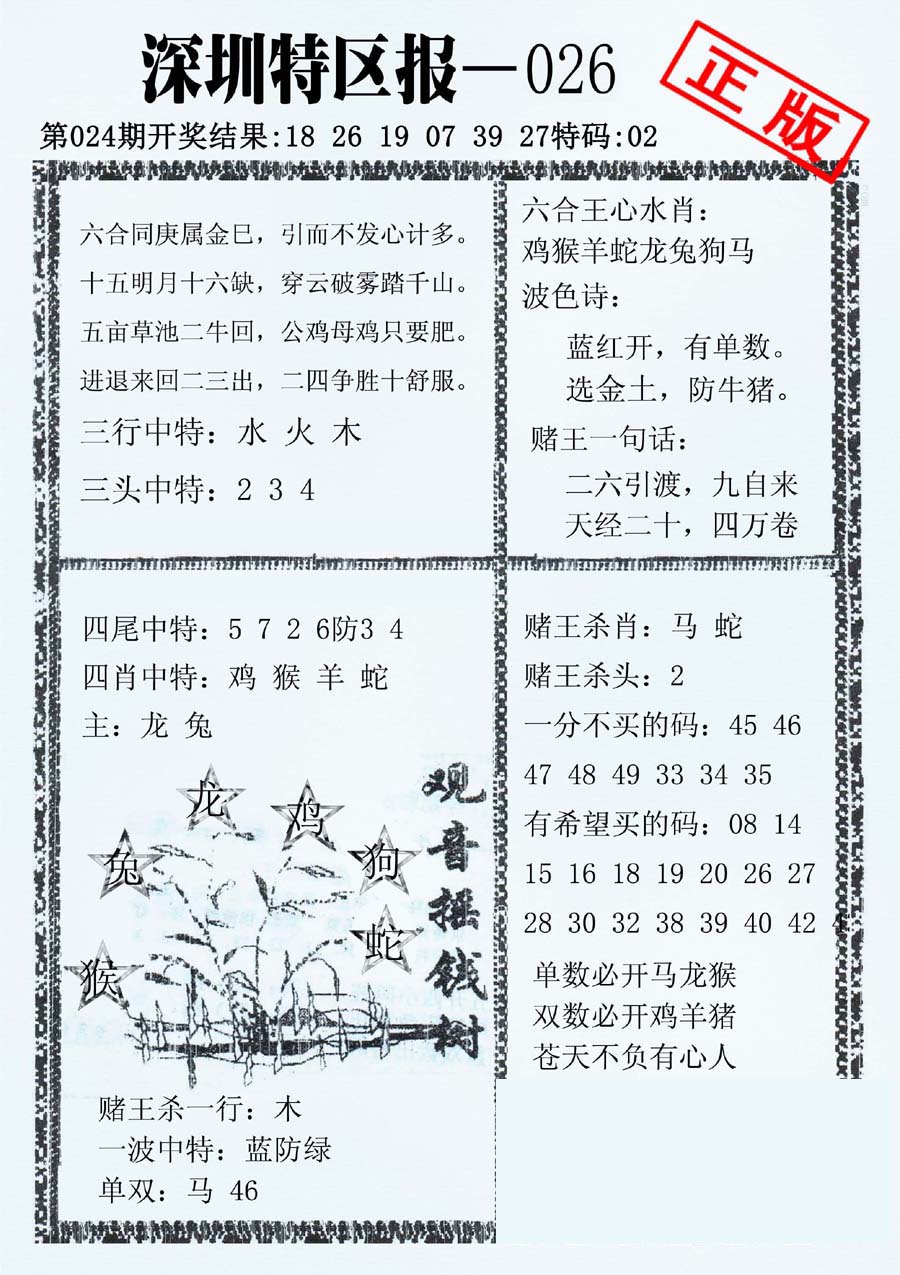 深圳特区报—026
正版
第024期开奖结果:18 26 19 07 39 27特码:02
六合同庚属金巳，引而不发心计多。
十五明月十六缺，穿云破雾踏千山。
五亩草池二牛回，公鸡母鸡只要肥。
进退来回二三出，二四争胜十舒服。
三行中特：水 火 木
三头中特：2 3 4
六合王心水肖：
鸡猴羊蛇龙兔狗马
波色诗：
蓝红开，有单数。
选金土，防牛猪。
赌王一句话：
二六引渡，九自来
天经二十，四万卷
四尾中特：5 7 2 6防3 4
四肖中特：鸡 猴 羊 蛇
主：龙 兔
龙
鸡
兔
狗
蛇
猴
观音摇钱树
赌王杀一行：木
一波中特：蓝防绿
单双：马 46
赌王杀肖：马 蛇
赌王杀头：2
一分不买的码：45 46
47 48 49 33 34 35
有希望买的码：08 14
15 16 18 19 20 26 27
28 30 32 38 39 40 42 4
单数必开马龙猴
双数必开鸡羊猪
苍天不负有心人